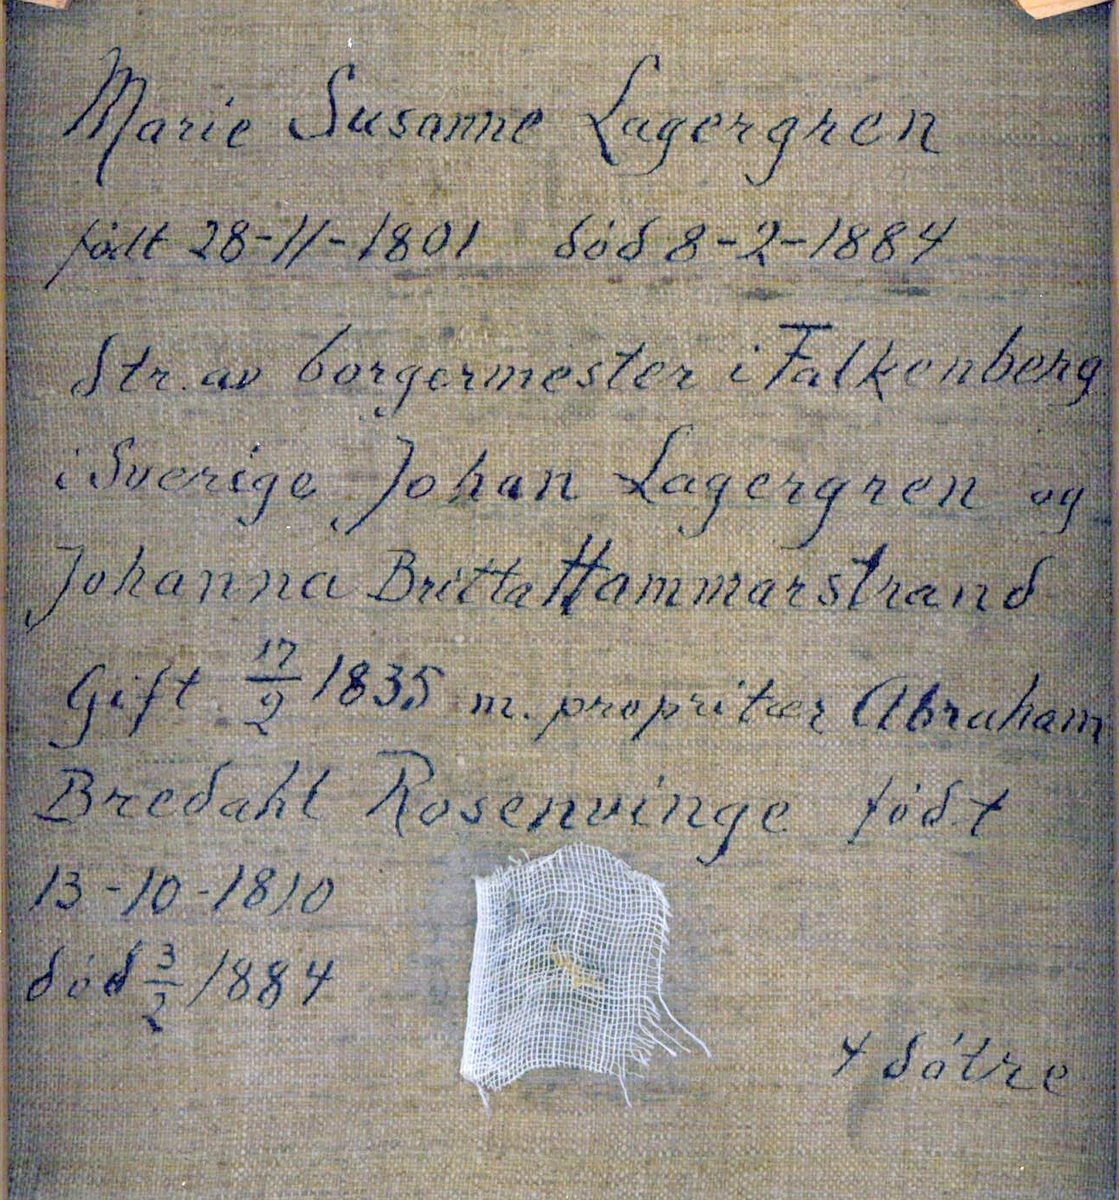 Marie Susanne Lagergren
født 28-11-1801 død 8-2-1884
dtr. av borgermester i Falkenberg
i Sverige Johan Lagergren og
Johanna Britta Hammarstrand
Gift 17/9 1835 m. propritær Abraham
Bredahl Rosenvinge født
13-10-1810
død 3/2 1884
4 døtre